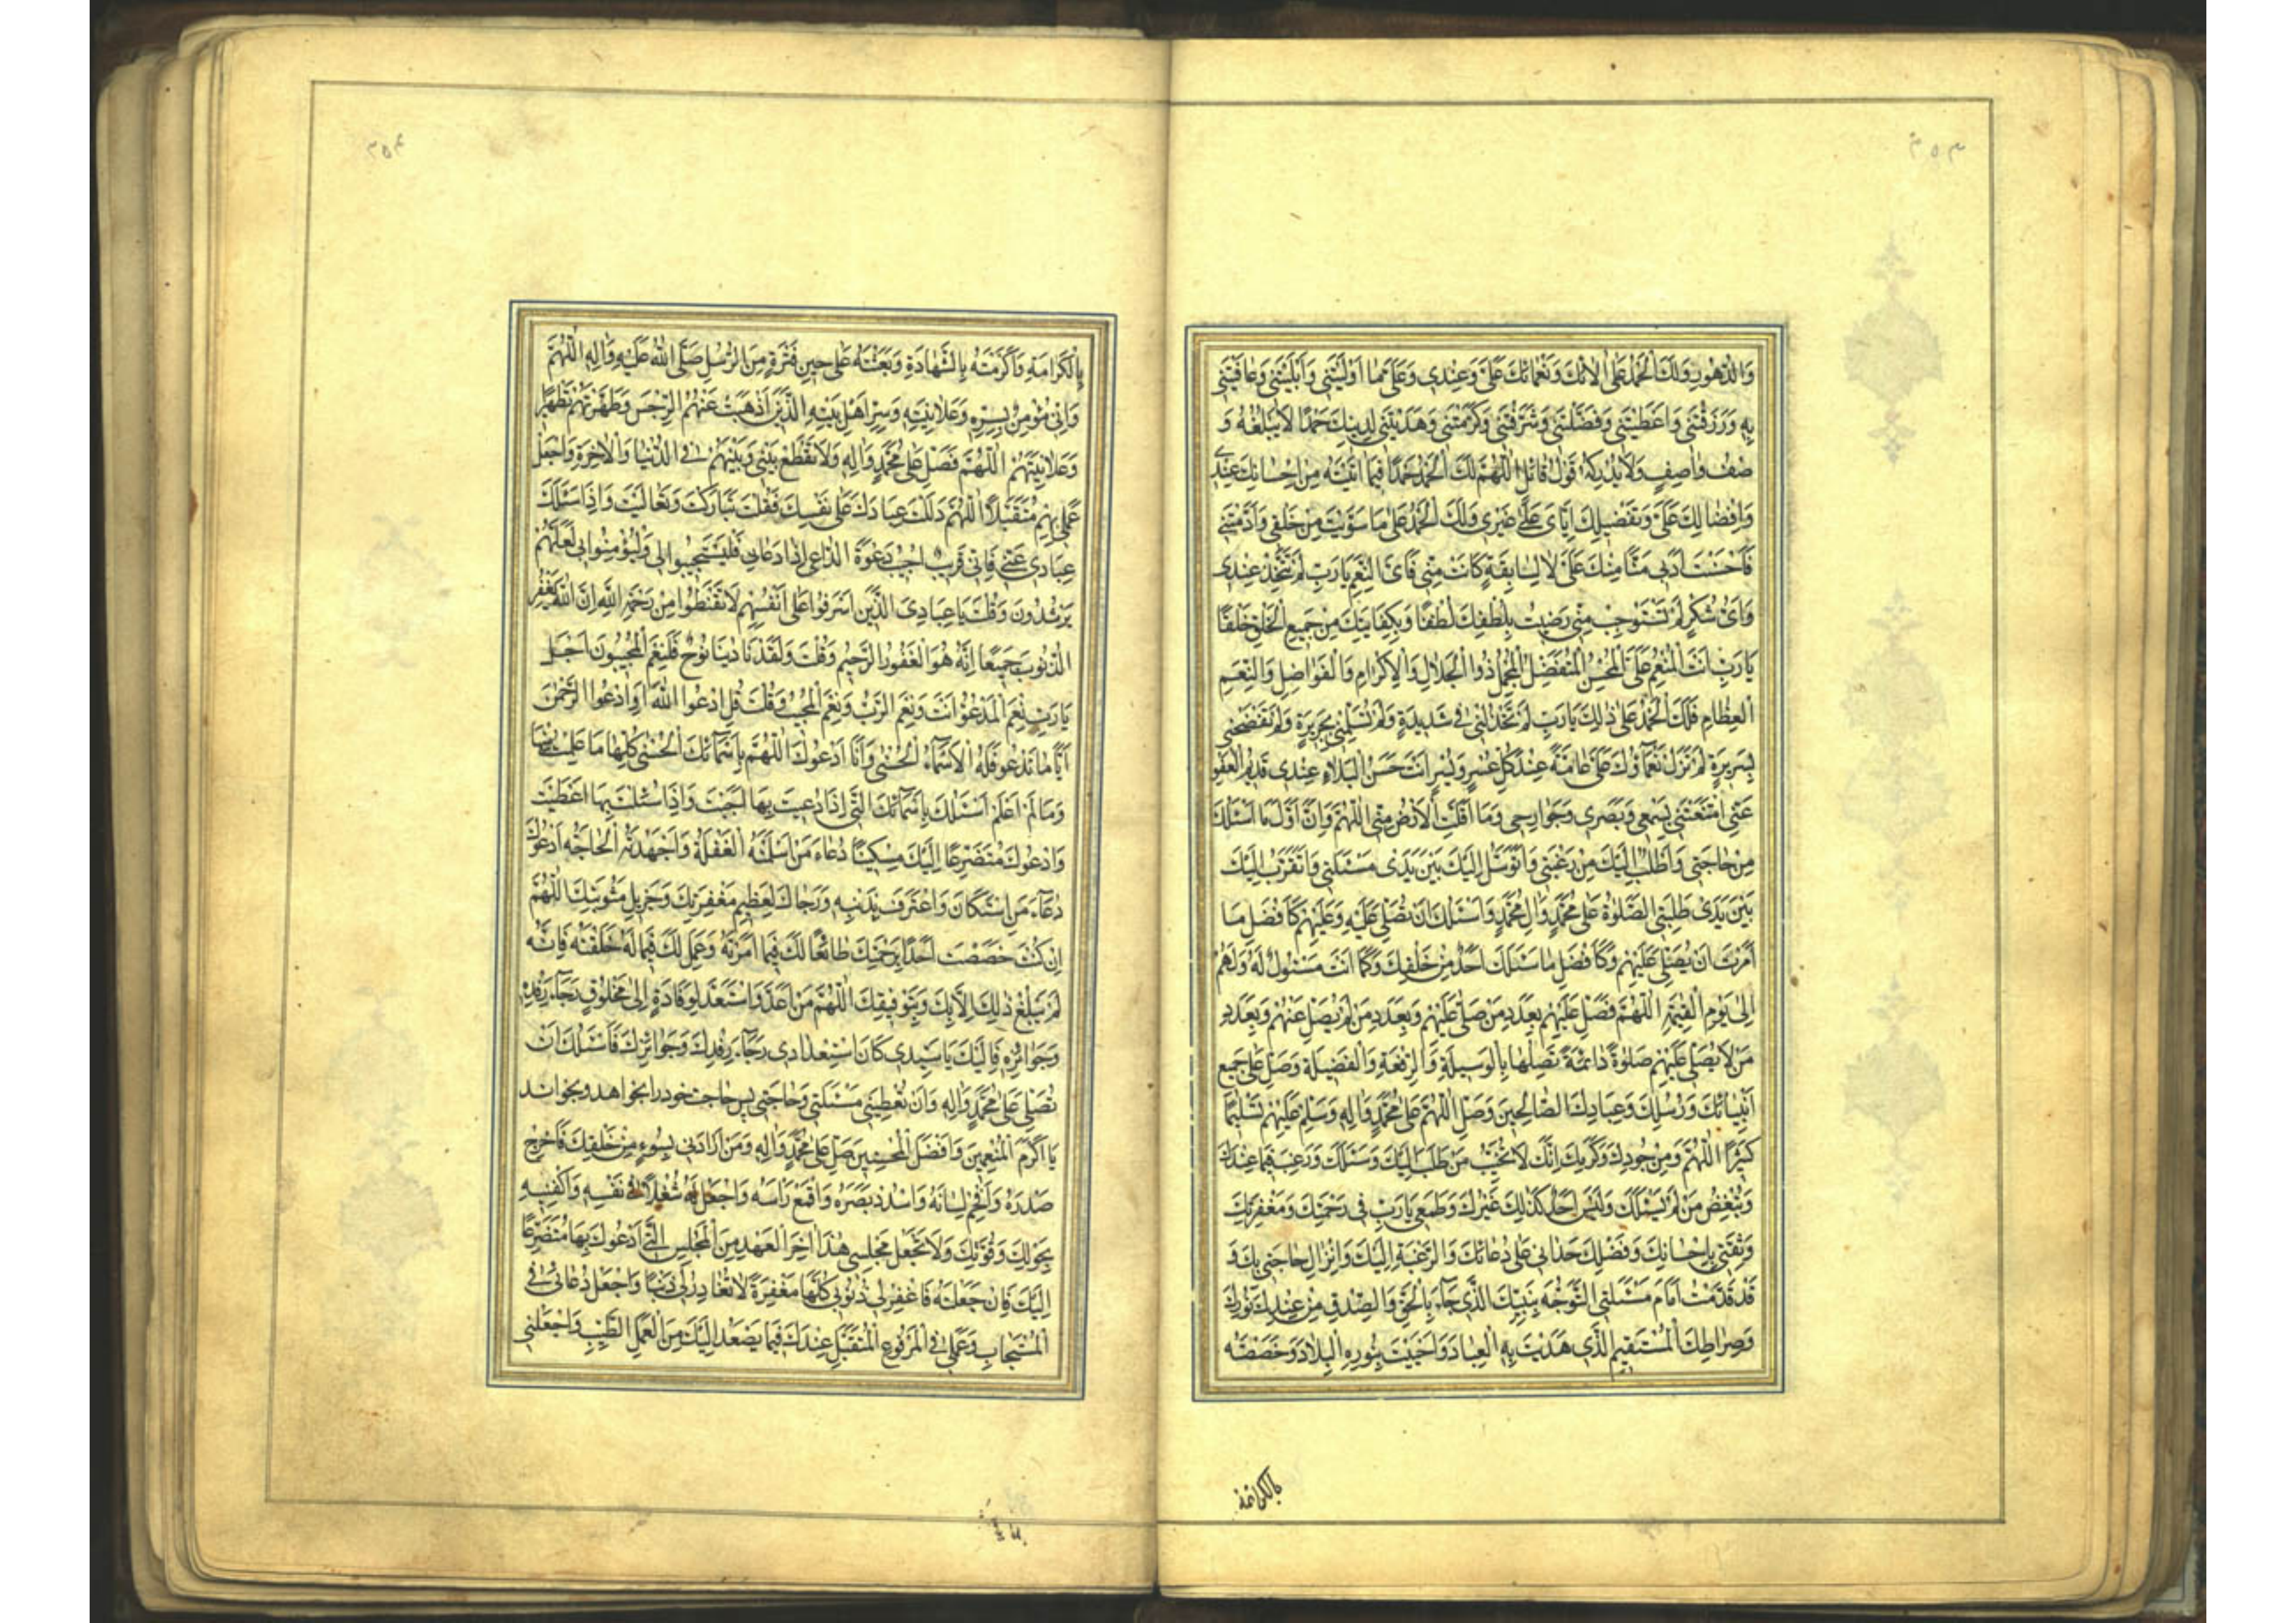 ۳۵۳
وَالدُّهُورِ وَلَكَ الْحَمْدُ عَلَى الْآئِكَ وَنَعْمَائِكَ عَلَيَّ وَعِنْدِي وَعَلَى مَا اَوْلَيْتَنِي وَاَبْلَيْتَنِي وَعَافَيْتَنِي
بِهِ وَرَزَقْتَنِي وَاَعْطَيْتَنِي وَفَضَّلْتَنِي وَشَرَّفْتَنِي وَكَرَّمْتَنِي وَهَدَيْتَنِي لِدِينِكَ حَمْدًا لَا يَبْلُغُهُ وَ
صْفُ وَاصِفٍ وَلَا يُدْرِكُهُ قَوْلُ قَائِلٍ اَللّٰهُمَّ لَكَ الْحَمْدُ حَمْدًا فِيمَا اٰتَيْتَهُ مِنْ اِحْسَانِكَ عِنْدِي
وَاِفْضَالِكَ عَلَيَّ وَتَفْضِيلِكَ اِيَّايَ عَلَى غَيْرِي وَلَكَ الْحَمْدُ عَلَى مَا سَوَّيْتَ مِنْ خَلْقِي وَاَدَّبْتَنِي
فَاَحْسَنْتَ اَدَبِي مَنًّا مِنْكَ عَلَيَّ لَا لِسَابِقَةٍ كَانَتْ مِنِّي فَاَيَّ النِّعَمِ يَا رَبِّ لَمْ تَتَّخِذْ عِنْدِي
وَاَيُّ شُكْرٍ لَمْ تَسْتَوْجِبْ مِنِّي رَضِيتُ بِلُطْفِكَ لُطْفًا وَبِكِفَايَتِكَ مِنْ جَمِيعِ الْخَلْقِ خَلَفًا
يَا رَبِّ اَنْتَ الْمُنْعِمُ عَلَيَّ الْمُحْسِنُ الْمُتَفَضِّلُ الْمُجْمِلُ ذُوا الْجَلَالِ وَالْاِكْرَامِ وَالْفَوَاضِلِ وَالنِّعَمِ
الْعِظَامِ فَلَكَ الْحَمْدُ عَلَى ذٰلِكَ يَا رَبِّ لَمْ تَخْذُلْنِي فِي شَدِيدَةٍ وَلَمْ تُسْلِمْنِي بِجَرِيرَةٍ وَلَمْ تَفْضَحْنِي
بِسَرِيرَةٍ لَمْ تَزَلْ نَعْمَاؤُكَ عَلَيَّ عَامَّةً عِنْدَ كُلِّ عُسْرٍ وَيُسْرٍ اَنْتَ حَسَنُ الْبَلَاءِ عِنْدِي قَدِيمُ الْعَفْوِ
عَنِّي اَمْتِعْنِي بِسَمْعِي وَبَصَرِي وَجَوَارِحِي وَمَا اَقَلَّتِ الْاَرْضُ مِنِّي اَللّٰهُمَّ وَاِنَّ اَوَّلَ مَا اَسْئَلُكَ
مِنْ حَاجَتِي وَاَطْلُبُ اِلَيْكَ مِنْ رَغْبَتِي وَاَتَوَسَّلُ اِلَيْكَ بَيْنَ يَدَيْ مَسْئَلَتِي وَاَتَقَرَّبُ اِلَيْكَ
بَيْنَ يَدَيْ طَلِبَتِي الصَّلٰوةُ عَلَى مُحَمَّدٍ وَاٰلِ مُحَمَّدٍ وَاَسْئَلُكَ اَنْ تُصَلِّيَ عَلَيْهِ وَعَلَيْهِمْ كَاَفْضَلِ مَا
اَمَرْتَ اَنْ يُصَلّٰى عَلَيْهِمْ وَكَاَفْضَلِ مَا سَئَلَكَ اَحَدٌ مِنْ خَلْقِكَ وَكَمَا اَنْتَ مَسْئُولٌ لَهُ وَلَهُمْ
اِلٰى يَوْمِ الْقِيٰمَةِ اَللّٰهُمَّ فَصَلِّ عَلَيْهِمْ بِعَدَدِ مَنْ صَلّٰى عَلَيْهِمْ وَبِعَدَدِ مَنْ لَمْ يُصَلِّ عَلَيْهِمْ وَبِعَدَدِ
مَنْ لَا يُصَلِّي عَلَيْهِمْ صَلٰوةً دَائِمَةً تَصِلُهَا بِالْوَسِيلَةِ وَالرِّفْعَةِ وَالْفَضِيلَةِ وَصَلِّ عَلَى جَمِيعِ
اَنْبِيَائِكَ وَرُسُلِكَ وَعِبَادِكَ الصَّالِحِينَ وَصَلِّ اللّٰهُمَّ عَلَى مُحَمَّدٍ وَاٰلِهِ وَسَلِّمْ عَلَيْهِمْ تَسْلِيمًا
كَثِيرًا اَللّٰهُمَّ وَمِنْ جُودِكَ وَكَرَمِكَ اِنَّكَ لَا تُخَيِّبُ مَنْ طَلَبَ اِلَيْكَ وَسَئَلَكَ وَرَغِبَ فِيمَا عِنْدَكَ
وَتُبْغِضُ مَنْ لَمْ يَسْئَلْكَ وَلَيْسَ اَحَدٌ كَذٰلِكَ غَيْرُكَ وَطَمَعِي يَا رَبِّ فِي رَحْمَتِكَ وَمَغْفِرَتِكَ
وَثِقَتِي بِاِحْسَانِكَ وَفَضْلِكَ حَدَانِي عَلَى دُعَائِكَ وَالرَّغْبَةِ اِلَيْكَ وَاِنْزَالِ حَاجَتِي بِكَ وَ
قَدْ قَدَّمْتُ اَمَامَ مَسْئَلَتِي التَّوَجُّهَ بِنَبِيِّكَ الَّذِي جَاءَ بِالْحَقِّ وَالصِّدْقِ مِنْ عِنْدِكَ وَنُورِكَ
وَصِرَاطِكَ الْمُسْتَقِيمِ الَّذِي هَدَيْتَ بِهِ الْعِبَادَ وَاَحْيَيْتَ بِنُورِهِ الْبِلَادَ وَخَصَصْتَهُ
بالکرامة
۳۵۴
بِالْكَرَامَةِ وَاَكْرَمْتَهُ بِالشَّهَادَةِ وَبَعَثْتَهُ عَلَى حِينِ فَتْرَةٍ مِنَ الرُّسُلِ صَلَّى اللّٰهُ عَلَيْهِ وَاٰلِهِ اَللّٰهُمَّ
وَاِنِّي مُؤْمِنٌ بِسِرِّهِ وَعَلَانِيَتِهِ وَسِرِّ اَهْلِ بَيْتِهِ الَّذِينَ اَذْهَبْتَ عَنْهُمُ الرِّجْسَ وَطَهَّرْتَهُمْ تَطْهِيرًا
وَعَلَانِيَتِهِمْ اَللّٰهُمَّ فَصَلِّ عَلَى مُحَمَّدٍ وَاٰلِهِ وَلَا تَقْطَعْ بَيْنِي وَبَيْنَهُمْ فِي الدُّنْيَا وَالْاٰخِرَةِ وَاجْعَلْ
عَمَلِي بِهِمْ مُتَقَبَّلًا اَللّٰهُمَّ دَلَلْتَ عِبَادَكَ عَلَى نَفْسِكَ فَقُلْتَ تَبَارَكْتَ وَتَعَالَيْتَ وَاِذَا سَئَلَكَ
عِبَادِي عَنِّي فَاِنِّي قَرِيبٌ اُجِيبُ دَعْوَةَ الدَّاعِ اِذَا دَعَانِ فَلْيَسْتَجِيبُوا لِي وَلْيُؤْمِنُوا بِي لَعَلَّهُمْ
يَرْشُدُونَ وَقُلْتَ يَا عِبَادِيَ الَّذِينَ اَسْرَفُوا عَلَى اَنْفُسِهِمْ لَا تَقْنَطُوا مِنْ رَحْمَةِ اللّٰهِ اِنَّ اللّٰهَ يَغْفِرُ
الذُّنُوبَ جَمِيعًا اِنَّهُ هُوَ الْغَفُورُ الرَّحِيمُ وَقُلْتَ وَلَقَدْ نَادٰينَا نُوحٌ فَلَنِعْمَ الْمُجِيبُونَ اَجَلْ
يَا رَبِّ نِعْمَ الْمَدْعُوُّ اَنْتَ وَنِعْمَ الرَّبُّ وَنِعْمَ الْمُجِيبُ وَقُلْتَ قُلِ ادْعُوا اللّٰهَ اَوِ ادْعُوا الرَّحْمٰنَ
اَيًّا مَا تَدْعُو فَلَهُ الْاَسْمَاءُ الْحُسْنٰى وَاَنَا اَدْعُوكَ اللّٰهُمَّ بِاَسْمَائِكَ الْحُسْنٰى كُلِّهَا مَا عَلِمْتُ مِنْهَا
وَمَا لَمْ اَعْلَمْ اَسْئَلُكَ بِاَسْمَائِكَ الَّتِي اِذَا دُعِيتَ بِهَا اَجَبْتَ وَاِذَا سُئِلْتَ بِهَا اَعْطَيْتَ
وَاَدْعُوكَ مُتَضَرِّعًا اِلَيْكَ مِسْكِينًا دُعَاءَ مَنْ اَسْلَمَتْهُ الْغَفْلَةُ وَاَجْهَدَتْهُ الْحَاجَةُ اَدْعُوكَ
دُعَاءَ مَنِ اسْتَكَانَ وَاعْتَرَفَ بِذَنْبِهِ وَرَجَاكَ لِعَظِيمِ مَغْفِرَتِكَ وَجَزِيلِ مَثُوبَتِكَ اَللّٰهُمَّ
اِنْ كُنْتَ خَصَصْتَ اَحَدًا بِرَحْمَتِكَ طَائِعًا لَكَ فِيمَا اَمَرْتَهُ وَعَمِلَ لَكَ فِيمَا لَهُ خَلَقْتَهُ فَاِنَّهُ
لَمْ يَبْلُغْ ذٰلِكَ اِلَّا بِكَ وَبِتَوْفِيقِكَ اَللّٰهُمَّ مَنْ اَعَدَّ وَاسْتَعَدَّ لِوِفَادَةٍ اِلٰى مَخْلُوقٍ رَجَاءَ رِفْدِهِ
وَجَوَائِزِهِ فَاِلَيْكَ يَا سَيِّدِي كَانَ اسْتِعْدَادِي رَجَاءَ رِفْدِكَ وَجَوَائِزِكَ فَاَسْئَلُكَ اَنْ
تُصَلِّيَ عَلَى مُحَمَّدٍ وَاٰلِهِ وَاَنْ تُعْطِيَنِي مَسْئَلَتِي وَحَاجَتِي پس حاجت خود را بخواهد و بخواند
يَا اَكْرَمَ الْمُنْعِمِينَ وَاَفْضَلَ الْمُحْسِنِينَ صَلِّ عَلَى مُحَمَّدٍ وَاٰلِهِ وَمَنْ اَرَادَنِي بِسُوءٍ مِنْ خَلْقِكَ فَاَحْرِجْ
صَدْرَهُ وَاَفْحِمْ لِسَانَهُ وَاسْدُدْ بَصَرَهُ وَاقْمَعْ رَأْسَهُ وَاجْعَلْ لَهُ شُغْلًا فِي نَفْسِهِ وَاكْفِنِيهِ
بِحَوْلِكَ وَقُوَّتِكَ وَلَا تَجْعَلْ مَجْلِسِي هٰذَا اٰخِرَ الْعَهْدِ مِنَ الْمَجَالِسِ الَّتِي اَدْعُوكَ بِهَا مُتَضَرِّعًا
اِلَيْكَ فَاِنْ جَعَلْتَهُ فَاغْفِرْ لِي ذُنُوبِي كُلَّهَا مَغْفِرَةً لَا تُغَادِرُ لِي ذَنْبًا وَاجْعَلْ دُعَائِي فِي
الْمُسْتَجَابِ وَعَمَلِي فِي الْمَرْفُوعِ الْمُتَقَبَّلِ عِنْدَكَ فِيمَا يَصْعَدُ اِلَيْكَ مِنَ الْعَمَلِ الطَّيِّبِ وَاجْعَلْنِي